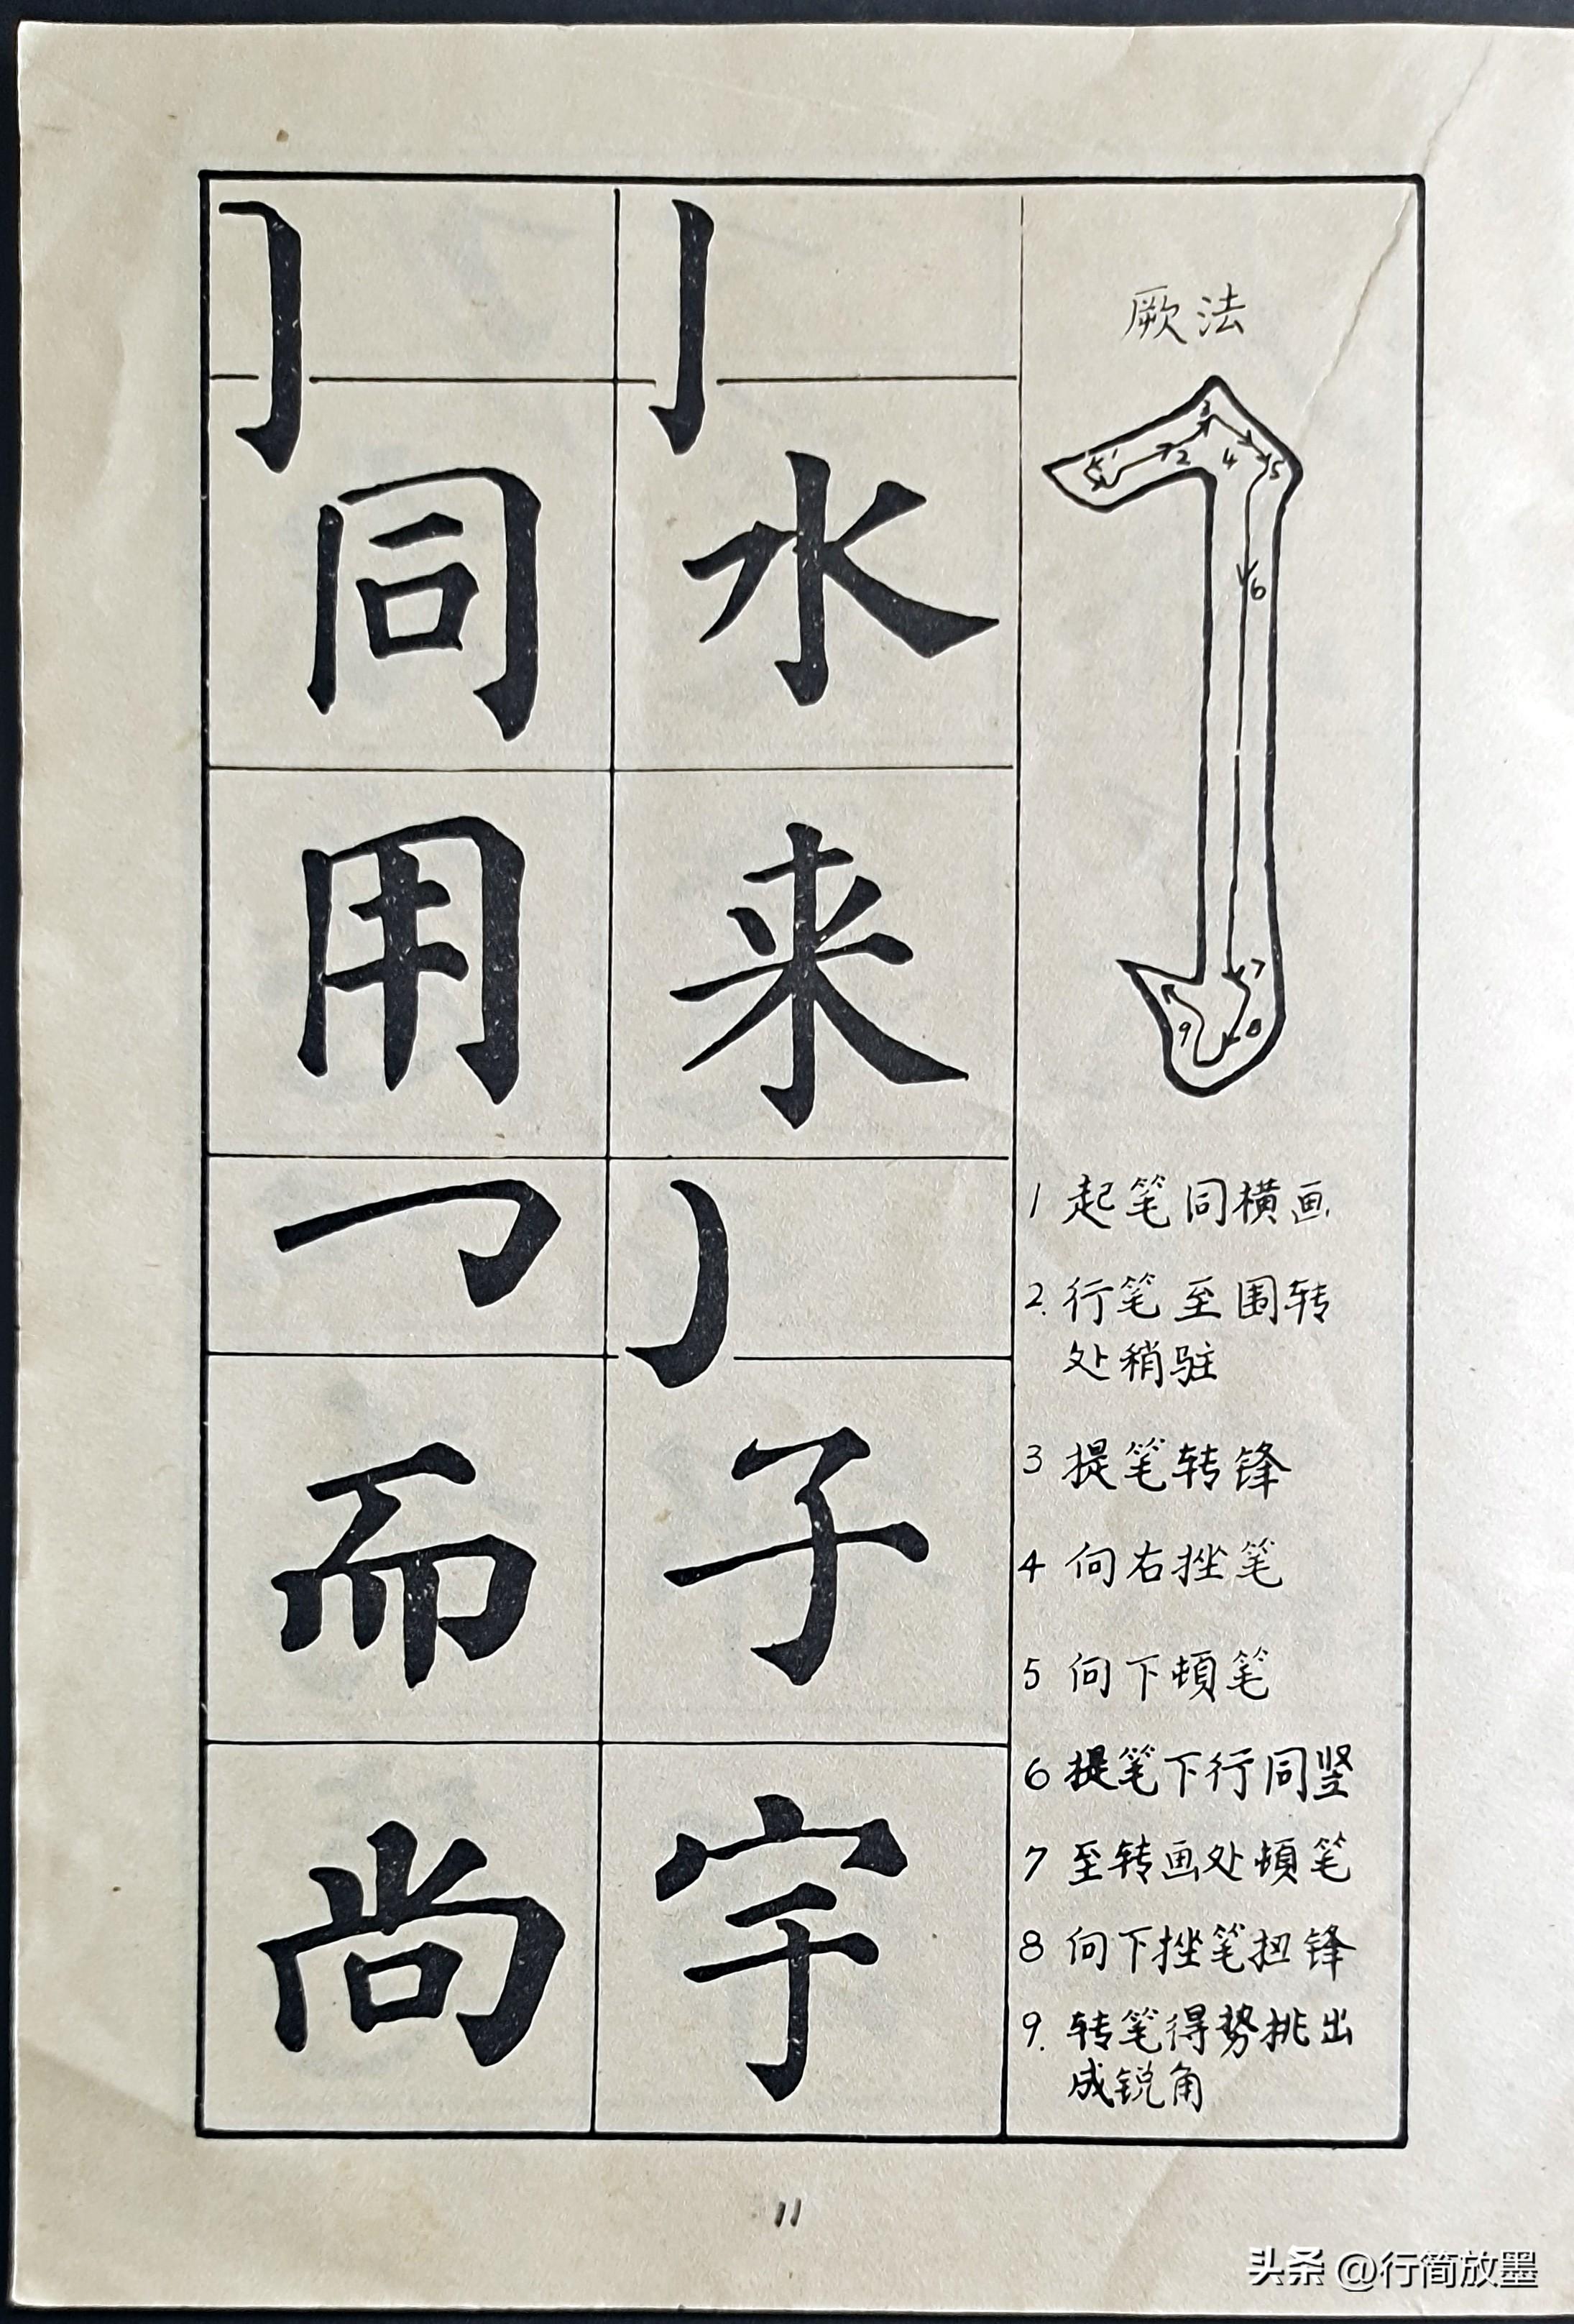 厥法
1 2 3 4 5 6 7 8 9
1 起笔同横画
2. 行笔至围转
处稍驻
3 提笔转锋
4 向右挫笔
5 向下顿笔
6 提笔下行同竖
7 至转画处顿笔
8 向下挫笔扭锋
9. 转笔得势挑出
成锐角
亅
水
来
亅
子
宇
同
用
而
尚
11
头条 @行简放墨